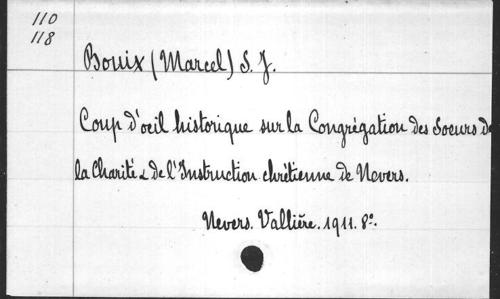 110
118
Bouix (Marcel) S. J.
Coup d'oeil historique sur la Congrégation des Soeurs de
la Charité & de l'Instruction chrétienne de Nevers.
Nevers. Vallière. 1911. 8º.